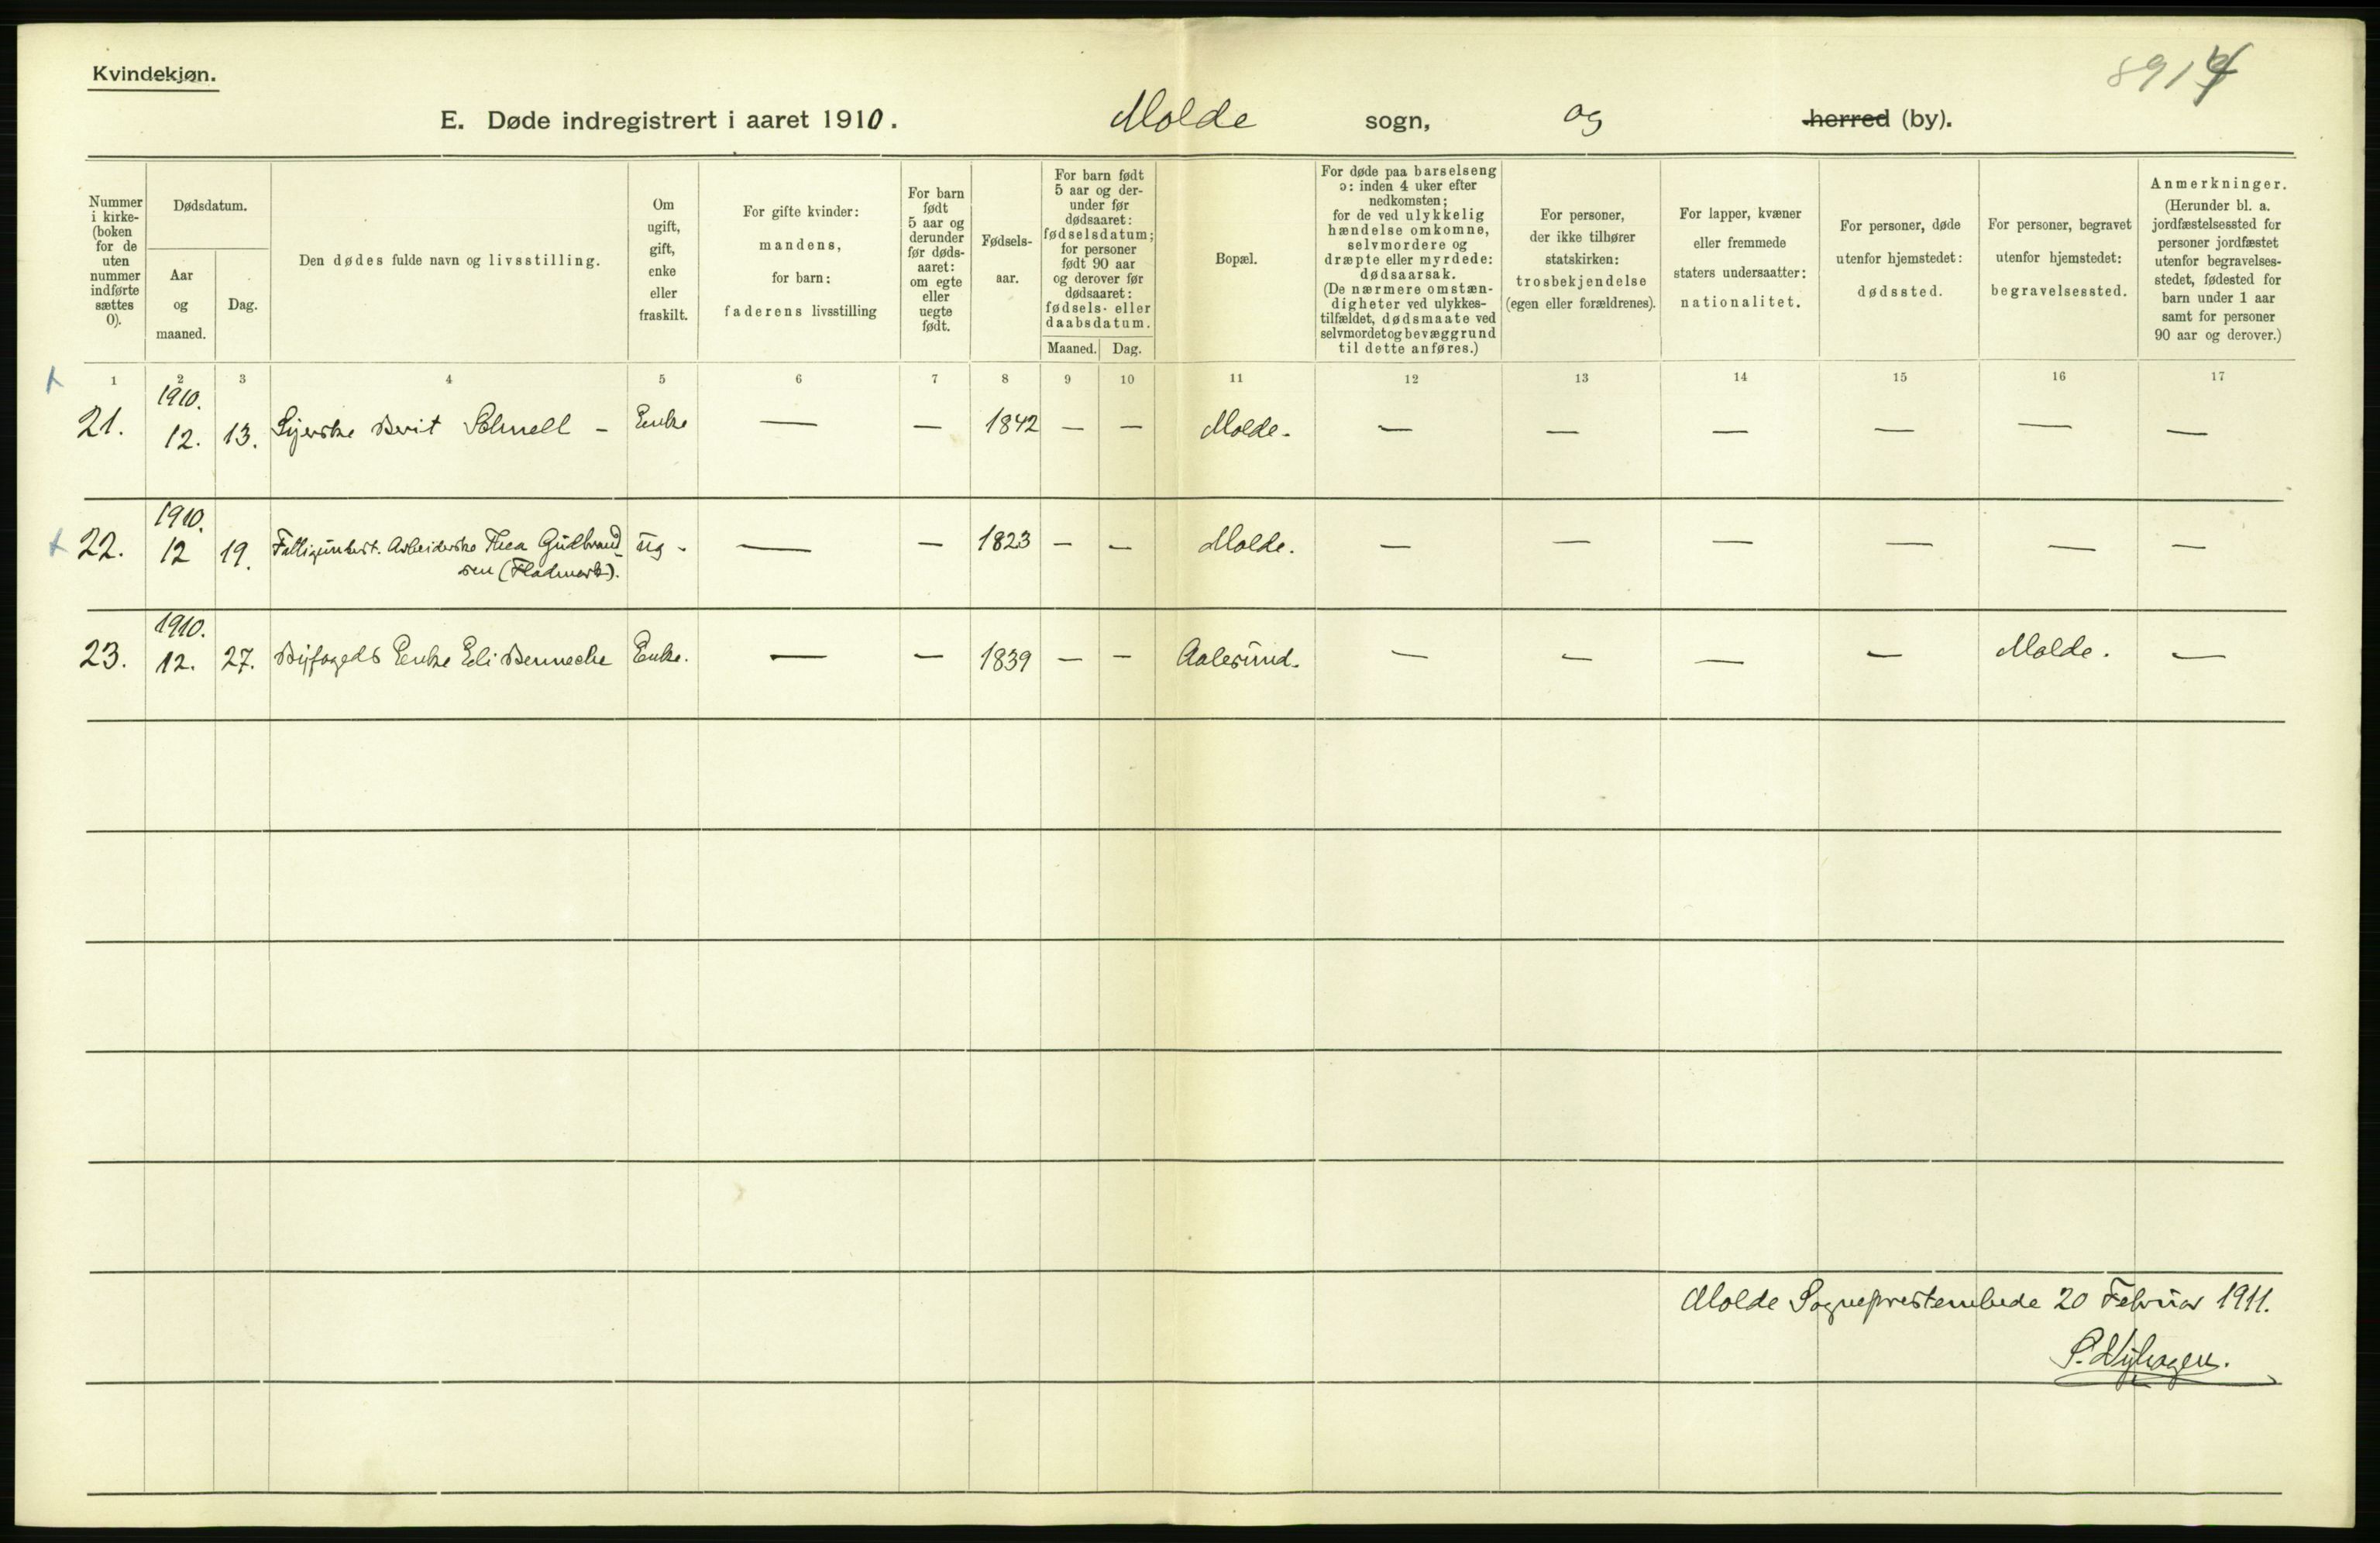 Kvindekjøn.
8914
E. Døde indregistrert i aaret 1910. Molde sogn, og herred (by).
Nummer i kirke- (boken for de uten nummer indførte sættes 0).
Dødsdatum.
Aar og maaned.
Dag.
Den dødes fulde navn og livsstilling.
Om ugift, gift, enke eller fraskilt.
For gifte kvinder: mandens, for barn: faderens livsstilling
For barn født 5 aar og derunder før døds- aaret: om egte eller uegte født.
Fødsels- aar.
For barn født 5 aar og der- under før dødsaaret: fødselsdatum; for personer født 90 aar og derover før dødsaaret: fødsels- eller daabsdatum.
Maaned. Dag.
Bopæl.
For døde paa barselseng ɔ: inden 4 uker efter nedkomsten; for de ved ulykkelig hændelse omkomne, selvmordere og dræpte eller myrdede: dødsaarsak. (De nærmere omstæn- digheter ved ulykkes- tilfældet, dødsmaate ved selvmordet og bevæggrund til dette anføres.)
For personer, der ikke tilhører statskirken: trosbekjendelse (egen eller forældrenes).
For lapper, kvæner eller fremmede staters undersaatter: nationalitet.
For personer, døde utenfor hjemstedet: dødssted.
For personer, begravet utenfor hjemstedet: begravelsessted.
Anmerkninger. (Herunder bl. a. jordfæstelsessted for personer jordfæstet utenfor begravelses- stedet, fødested for barn under 1 aar samt for personer 90 aar og derover.)
1 2 3 4 5 6 7 8 9 10 11 12 13 14 15 16 17
21. 1910. 12. 13. Syerske Berit Schnell – Enke — — 1842 — — Molde. — — — — — —
22. 1910. 12 19. Fattigunderst. Arbeiderske Thea Gudbrand- ug. — — 1823 — — Molde. — — — — — —
sen (Fladmark).
23. 1910. 12. 27. Byfogeds Enke Eli Benneche Enke. — — 1839 — — Aalesund. — — — — Molde. —
Molde Sogneprestembede 20 Februar 1911.
P. Nyhagen.